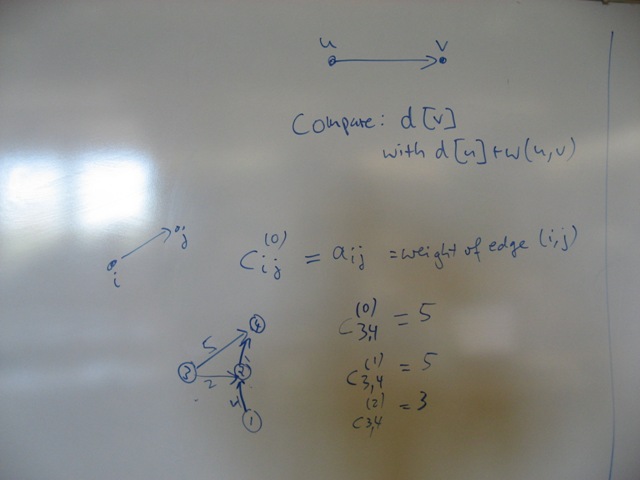 u v
Compare: d[v]
with d[u]+w(u,v)
i j
C_{ij}^{(0)} = a_{ij} = weight of edge (i,j)
C_{3,4}^{(0)} = 5
C_{3,4}^{(1)} = 5
C_{3,4}^{(2)} = 3
4
5
3 2 2
1